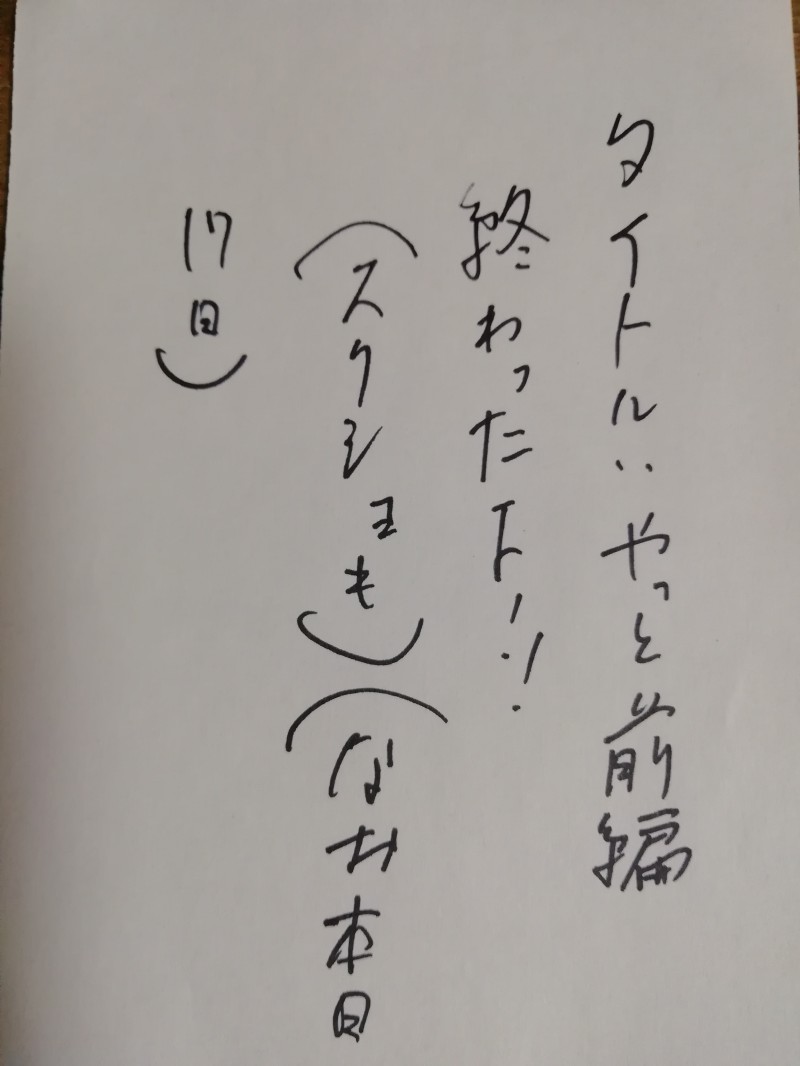 タイトルいやっと前編
終わった下!!
(スクショも)(なお本日
17日)